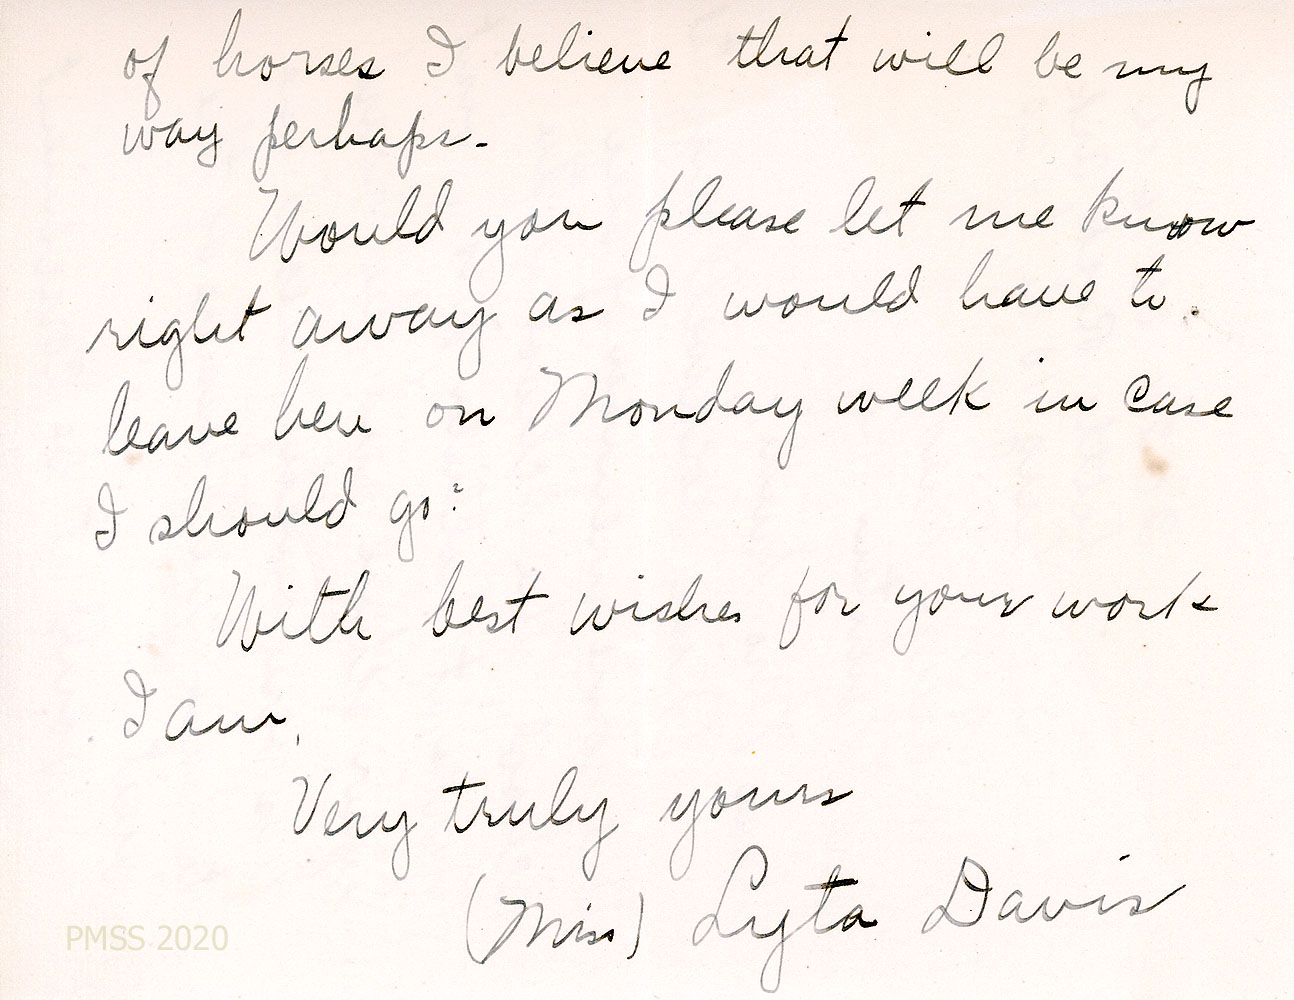 of horses I believe that will be my
way perhaps.
Would you please let me know
right away as I would have to
leave here on Monday week in case
I should go?
With best wishes for your work
I am,
Very truly yours
(Miss) Lyta Davis
PMSS 2020